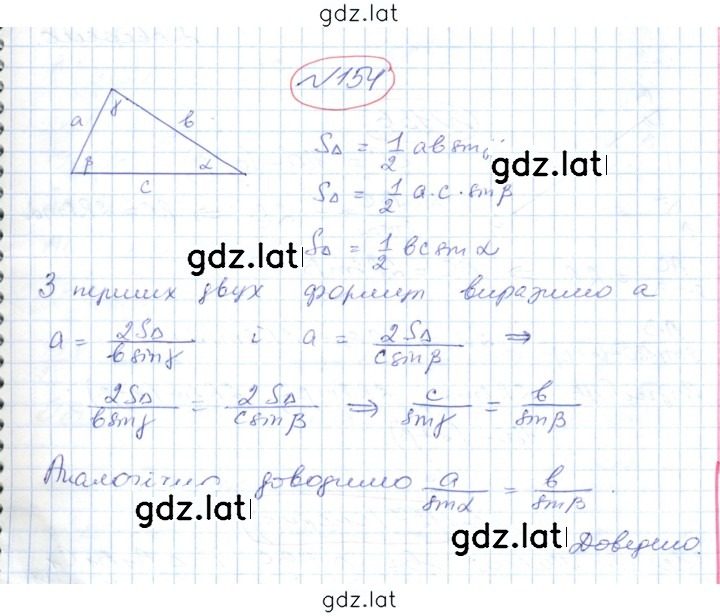 gdz.lat
№154
a γ в
β α
c
S∆ = 1/2 ab sin γ
gdz.lat
S∆ = 1/2 a·c·sin β
gdz.lat
S∆ = 1/2 вc sin α
З перших двух формул виразимо a
a = 2S∆/в sin γ і a = 2S∆/c sin β ⇒
gdz.lat
2S∆/в sin γ = 2S∆/c sin β ⇒ c/sin γ = в/sin β
Аналогічно доводимо a/sin α = в/sin β.
gdz.lat
gdz.lat
Доведено.
gdz.lat